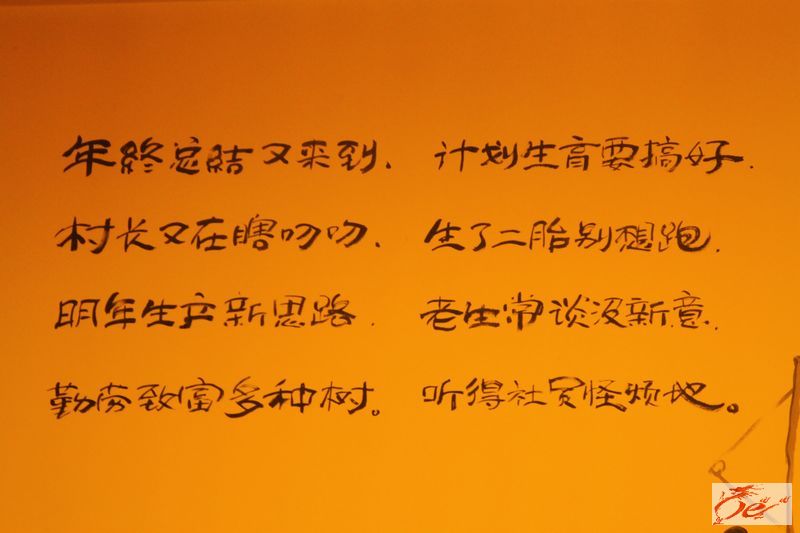 年終总結又来到、 计划生育要搞好.
村长又在瞎叨叨、 生了二胎别想跑.
明年生产新思路. 老生常谈没新意.
勤劳致富多种树。 听得社员怪烦地。